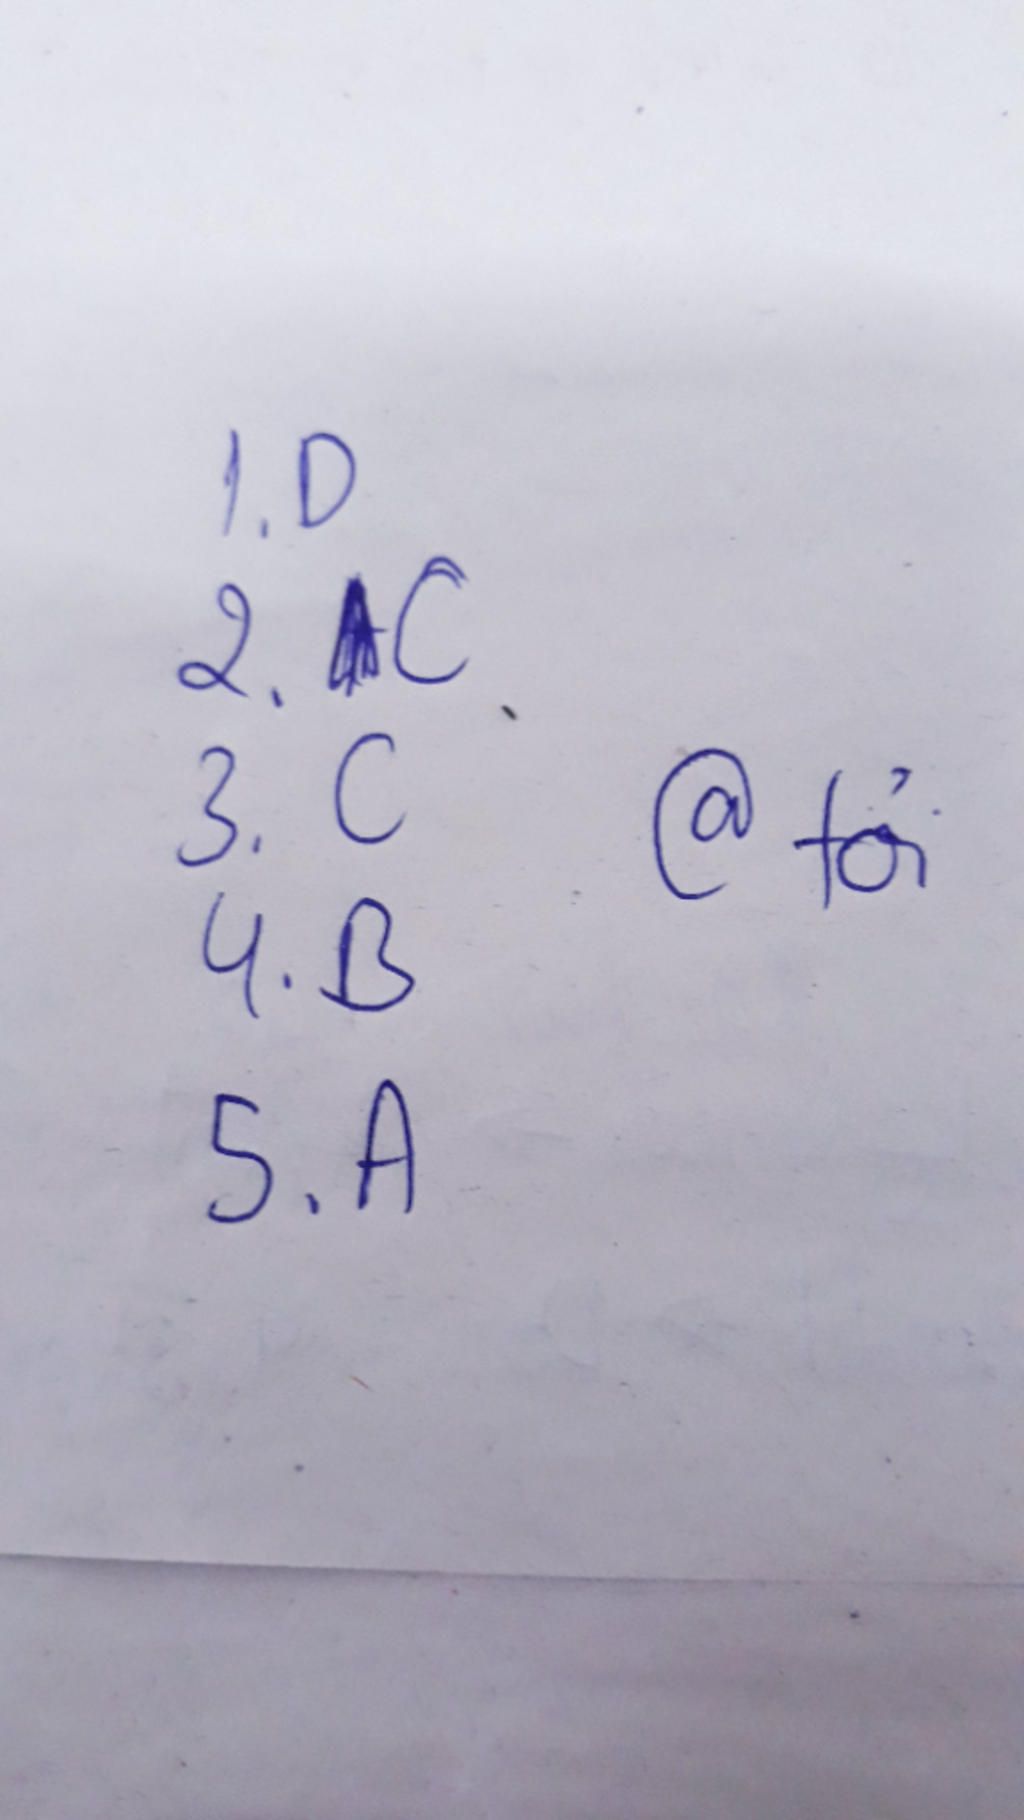 1. D
2. C
3. C
@ tởi
4. B
5. A